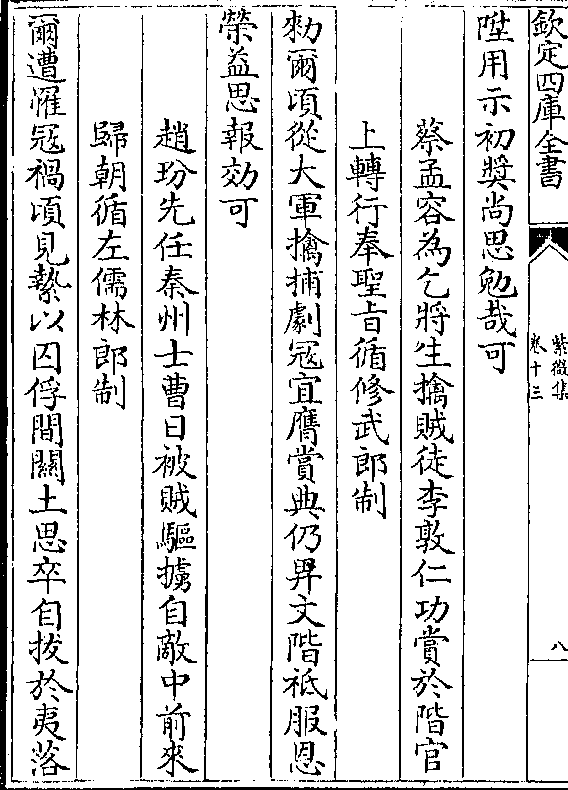 欽定四庫全書
紫微集
卷十三
八
陞用示初奬尚思勉哉可
蔡孟容為乞將生擒賊徒李敦仁功賞於階官
上轉行奉聖旨循修武郎制
勑爾頃從大軍擒捕劇冦宜膺賞典仍畀文階祗服恩
榮益思報効可
趙玢先任秦州士曹日被賊驅擄自敵中前來
歸朝循左儒林郎制
爾遭罹冦禍頃見縶以囚俘間關土思卒自拔於夷落